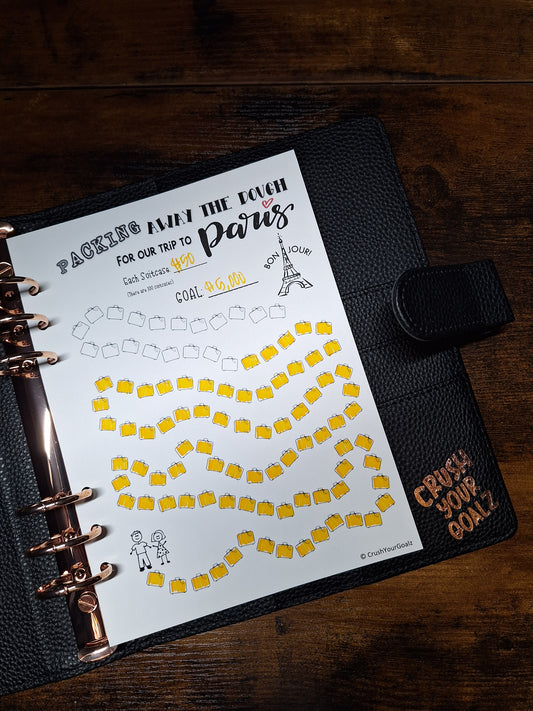 PACKING AWAY THE DOUGH
FOR OUR TRIP TO Paris
Each Suitcase: $50
(There are 100 suitcases)
GOAL: $5,000
BON JOUR!
© CrushYourGoalz
CRUSH
YOUR
GOALZ